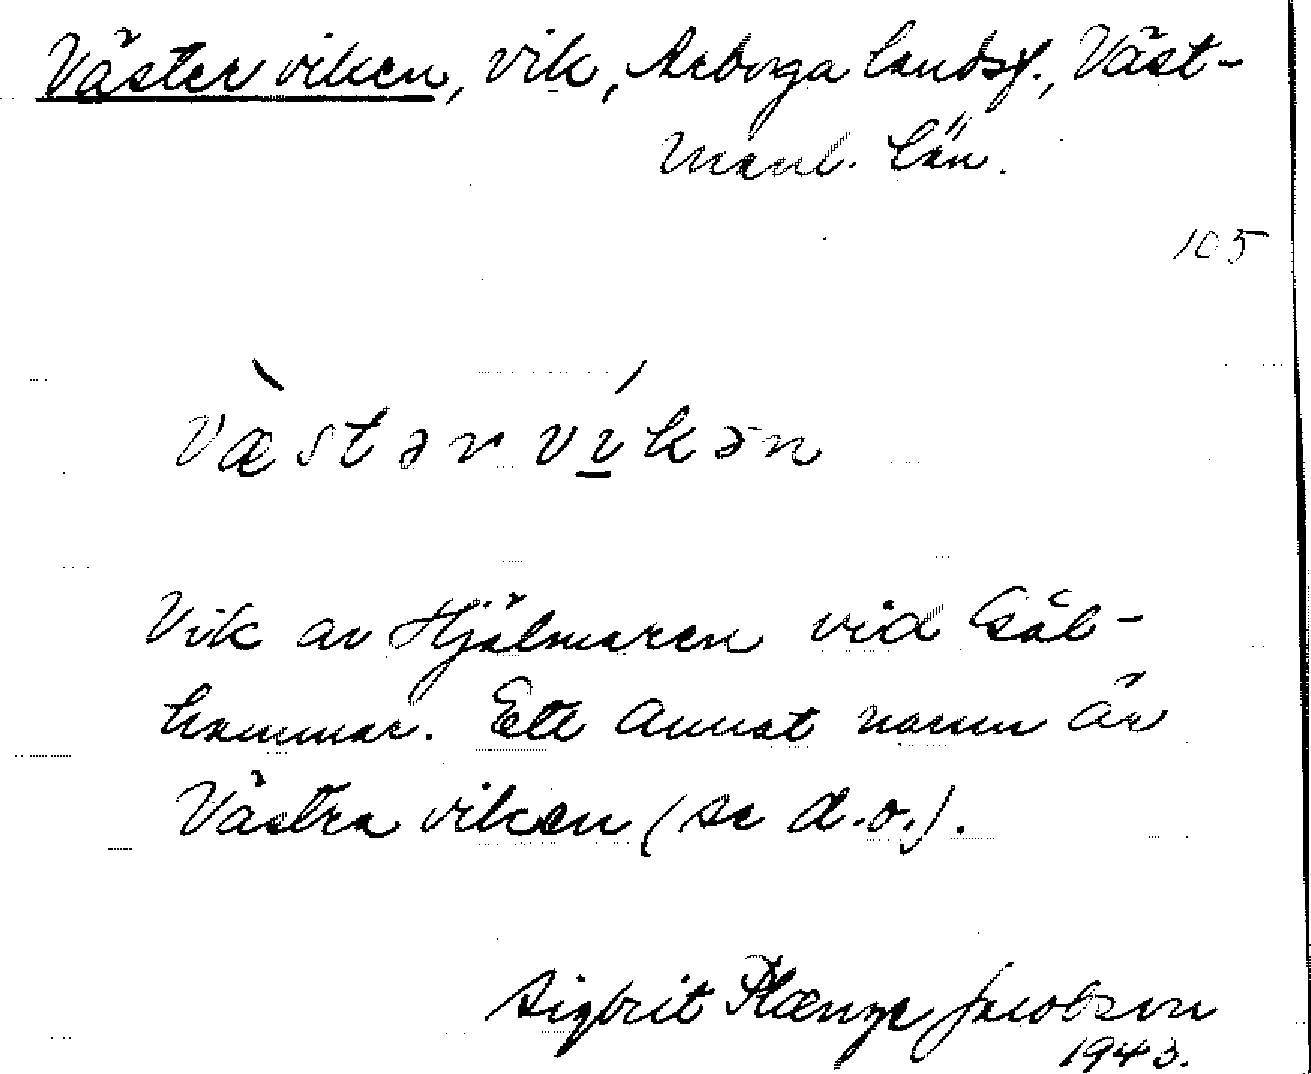 Västerviken, vik, Arboga landsf., Väst-
manl. län.
105
væstərvikən
Vik av Hjälmaren vid Gål-
hammar. Ett annat namn är
Västra viken (se d.o.).
Sigbrit Plænge Jacobson
1943.